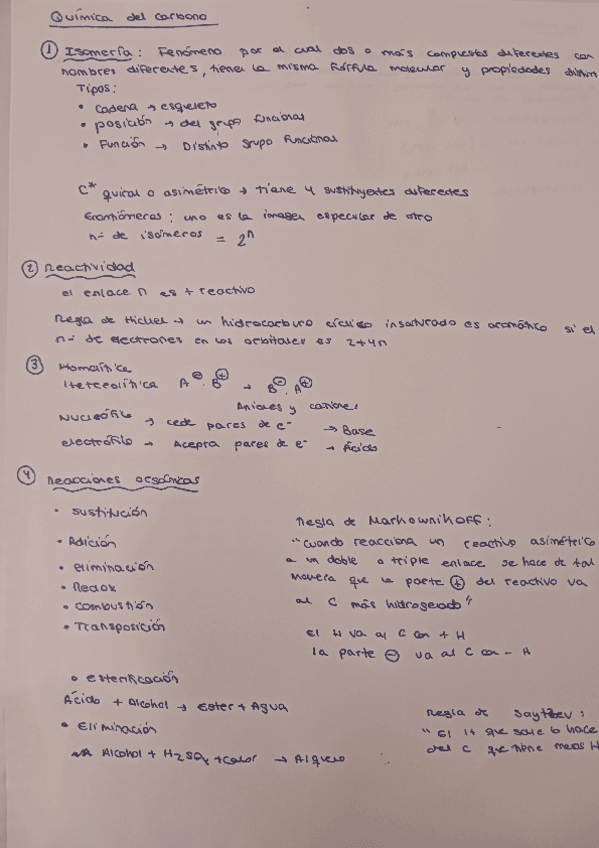 Química del carbono
① Isomería: Fenómeno por el cual dos o más compuestos diferentes con
nombres diferentes, tienen la misma fórmula molecular y propiedades distin
Tipos:
• Cadena → esqueleto
• posición → del grupo funcional
• Función → Distinto grupo funcional
C* quiral o asimétrico → tiene 4 sustituyentes diferentes
Enantiómeros: uno es la imagen especular de otro
nº de isómeros = 2ⁿ
② Reactividad
el enlace π es + reactivo
Regla de Hückel → un hidrocarburo cíclico insaturado es aromático si el
nº de electrones en los orbitales es 2+4n
③ Homolítica
Heterolítica A⊖ . B⊕ → B⊖ . A⊕
Aniones y cationes
Nucleófilo → cede pares de e⁻ → Base
electrófilo → Acepta pares de e⁻ → Ácido
④ Reacciones orgánicas
• Sustitución
• Adición
• eliminación
• Redox
• Combustión
• Transposición
Regla de Markownikoff:
"Cuando reacciona un reactivo asimétrico
a un doble o triple enlace se hace de tal
manera que la parte ⊕ del reactivo va
al C más hidrogenado"
el H va al C con + H
la parte ⊖ va al C con - H
• esterificación
Ácido + Alcohol → Ester + Agua
• Eliminación
Alcohol + H₂SO₄ + calor → Alqueno
Regla de Saytzev:
"El H que sale lo hace
del C que tiene menos H